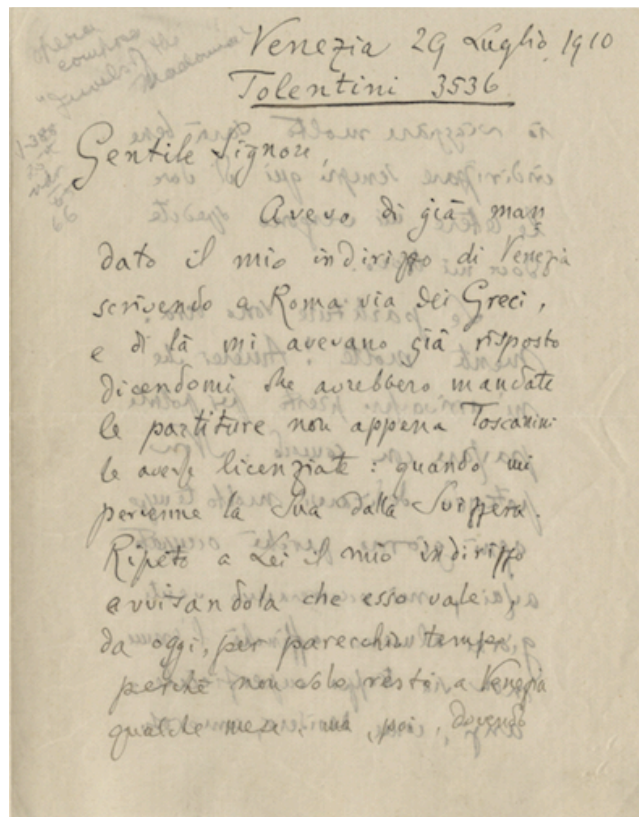 Venezia 29 Luglio 1910
Tolentini 3536
Gentile Signore,
Avevo di già man
dato il mio indirizzo di Venezia
scrivendo a Roma via dei Greci,
e di là mi avevano già risposto
dicendomi che avrebbero mandate
le partiture non appena Toscanini
le avesse licenziate: quando mi
pervenne la Sua dalla Svizzera.
Ripeto a Lei il mio indirizzo
avvisandola che esso vale,
da oggi, per parecchio tempo,
perchè non solo resto a Venezia
qualche mese, ma, poi, dovendo